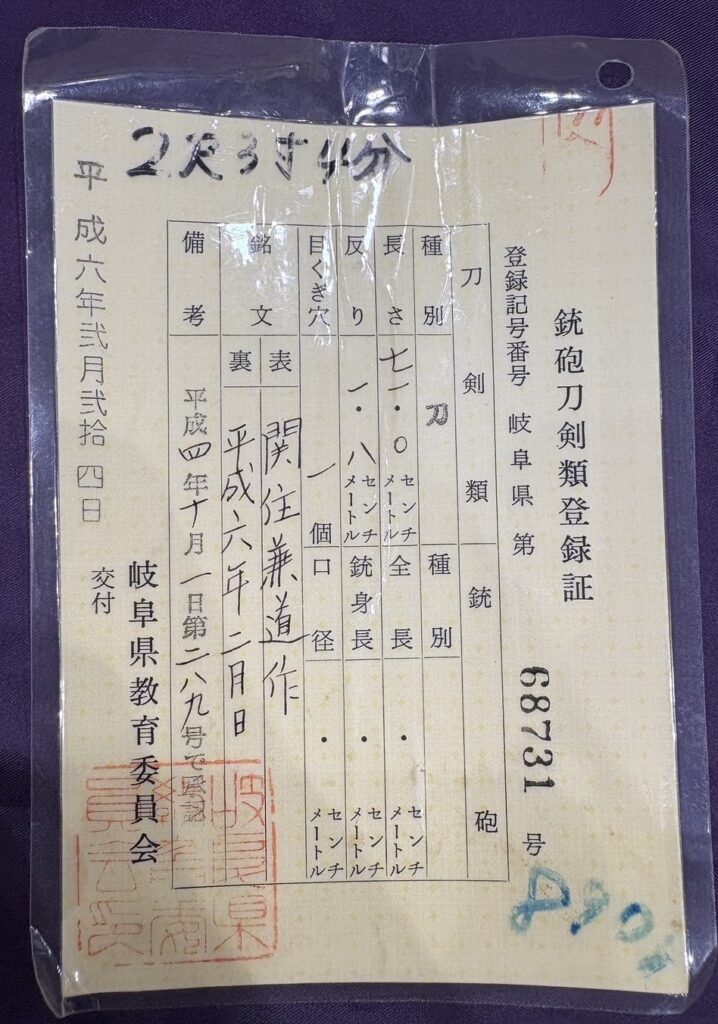 2尺3寸4分
銃砲刀剣類登録証
登録記号番号 岐阜県 第 68731 号
刀剣類 銃砲
種別 刀 種別
長さ 七一.〇 センチメートル 全長 . センチメートル
反り 一.八 センチメートル 銃身長 . センチメートル
目くぎ穴 一個 口径 . センチメートル
銘文 表 関住兼道作
裏 平成六年二月日
備考 平成四年十月一日第二八九号で承認
岐阜県教育委員会
交付
平成六年弐月弐拾四日